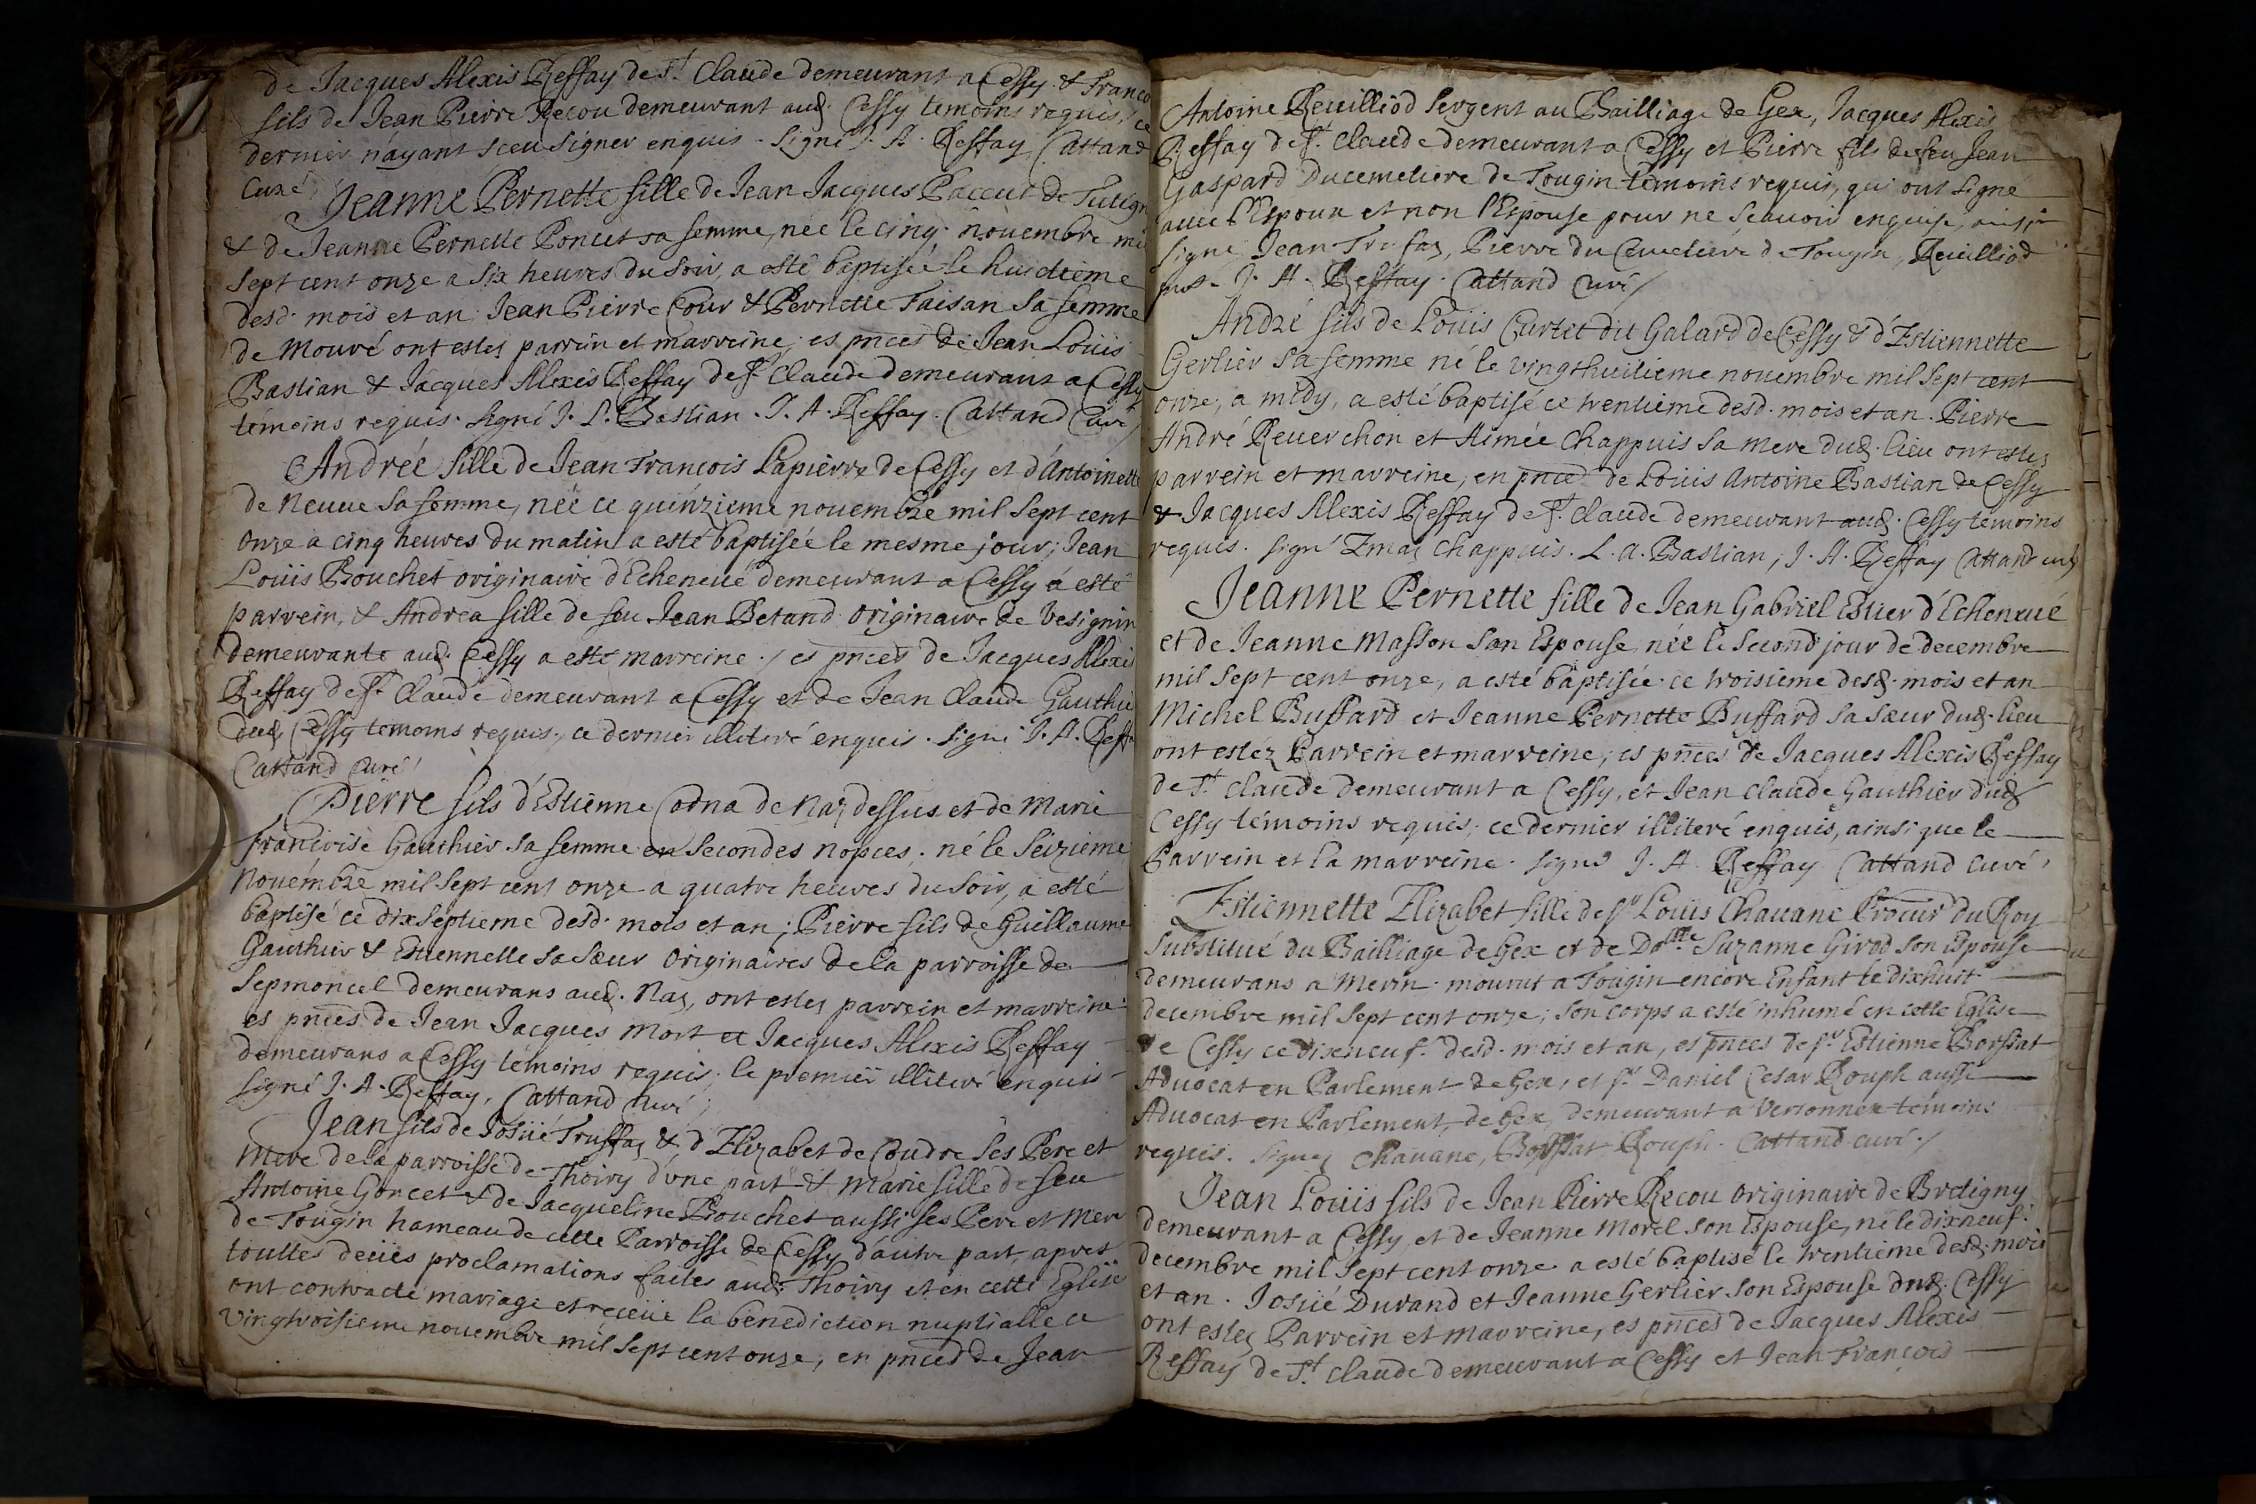 de Jacques Alexis Reffay de St. Claude demeurant a Cessy & Franco
fils de Jean Pierre Recou demeurant aud. Cessy temoins requis, ce
dernier n'ayant sceu signer enquis. Signé J. A. Reffay, Cattand
Curé
Jeanne Pernette fille de Jean Jacques Paccut de
& de Jeanne Pernette Poncet sa femme, née le cinq novembre mil
sept cent onze a six heures du soir, a esté baptisée le huictieme
desd. mois et an Jean Pierre Cour & Pernette Taisan sa femme
de Mouré ont estez parrein et marreine, es pnces de Jean Louis
Bastian & Jacques Alexis Reffay de St. Claude demeurant a Cessy
témoins requis. signé J. L. Bastian. J. A. Reffay. Cattand Curé
Andréé fille de Jean Francois Lapierre de Cessy et d'Antoinette
de Neuue sa femme, néé ce quinzieme nouembre mil sept cent
onze a cinq heures du matin a esté baptisée le mesme jour; Jean
Louis Bouchet originaire d'Echeneué demeurant a Cessy a esté
parrein, & Andrea fille de feu Jean Betand originaire de Vesignin
demeurante aud. Cessy a esté marreine / es pnces de Jacques Alexis
Reffay de St. Claude demeurant a Cessy et de Jean Claude Gauthie
dud. Cessy temoins requis, ce dernier illiteré enquis. signé J. A. Reff
Cattand Curé
Pierre fils d'Estienne Codna de Naz dessus et de Marie
francoise Gauthier sa femme en secondes nopces. né le seizieme
Nouembre mil sept cent onze a quatre heures du soir, a esté
baptisé ce dixseptieme desd. mois et an; Pierre fils de Guillaume
Gauthier & Estiennette sa sœur originaires de la parroisse de
Sepmoncel demeurans aud. Naz, ont estez parrein et marreine
es pnces de Jean Jacques Mort et Jacques Alexis Reffay
demeurans a Cessy témoins requis; le premier illiteré enquis
signé J. A. Reffay, Cattand curé;
Jean fils de Josüé Truffaz & d'Elizabet de Coudre ses Pere et
Mere de la parroisse de Thoiry d'une part & Marie fille de feu
Antoine Goncet & de Jacqueline Bouchet aussi ses Pere et Mere
de Tougin hameau de cette Parroisse de Cessy d'autre part, apres
touttes deües proclamations faites aud. Thoiry et en cette Eglise
ont contracté mariage et receüe la benediction nuptialle ce
vingtroisieme nouembre mil sept cent onze, en pnced de Jean
Antoine Reuilliod sergent au Bailliage de Gex, Jacques Alexis
Reffay de St. Claude demeurant a Cessy et Pierre fils de feu Jean
Gaspard Ducemetiere de Tougin témoins requis, qui ont signé
auec l'Espoux et non l'Espouse pour ne scauoir enquise, ainsi
signé Jean Trufaz, Pierre du Cemetiere de Tougin, Reuilliod
J. A. Reffay. Cattand curé /
André fils de Loüis Curtet dit Galard de Cessy & d'Estiennette
Gerlier sa femme né le vingthuitieme nouembre mil sept cent
onze, a midy, a esté baptisé ce trentieme desd. mois et an. Pierre
André Reuerchon et Aimée Chappuis sa mere dud. lieu ont estez
parrein et marreine, en pnces de Loüis Antoine Bastian de Cessy
& Jacques Alexis Reffay de St. Claude demeurant aud. Cessy temoins
requis. signé Emaz Chappuis. L. A. Bastian, J. A. Reffay Cattand curé
Jeanne Pernette fille de Jean Gabriel Estier d'Echeneué
et de Jeanne Masson son Espouse née le second jour de decembre
mil sept cent onze, a esté baptisée ce troisieme desd. mois et an
Michel Buffard et Jeanne Pernette Buffard sa sœur dud. lieu
ont estéz Parrein et marreine, es pnces de Jacques Alexis Reffay
de St. Claude demeurant a Cessy, et Jean Claude Gauthier dud.
Cessy témoins requis, ce dernier illiteré enquis, ainsi que le
Parrein et la marreine. signé J. A. Reffay Cattand curé,
Estiennette Elizabet fille de Sr Loüis Chauane Procur du Roy
substitué du Bailliage de Gex et de Dlle Suzanne Girod son Espouse
demeurans a Merin. mourut a Tougin encore Enfant le dixhuit
decembre mil sept cent onze; son corps a esté inhumé en cette Eglise
de Cessy ce dixeneuf. desd. mois et an, es pnces de Sr Estienne Borssat
Aduocat en Parlement de Gex, et Sr Daniel Cesar Rouph aussi
Aduocat en Parlement de Gex, demeurant a Versonnex témoins
requis. signez Chauane, Borssat Rouph. Cattand curé. /
Jean Loüis fils de Jean Pierre Recou originaire de Bretigny
demeurant a Cessy et de Jeanne Morel son Espouse, né le dixneuf.
decembre mil sept cent onze a esté baptisé le trentieme desd. mois
et an. Josüé Durand et Jeanne Gerlier son Espouse dud. Cessy
ont estez Parrein et marreine, es pnces de Jacques Alexis
Reffay de St. Claude demeurant a Cessy et Jean François